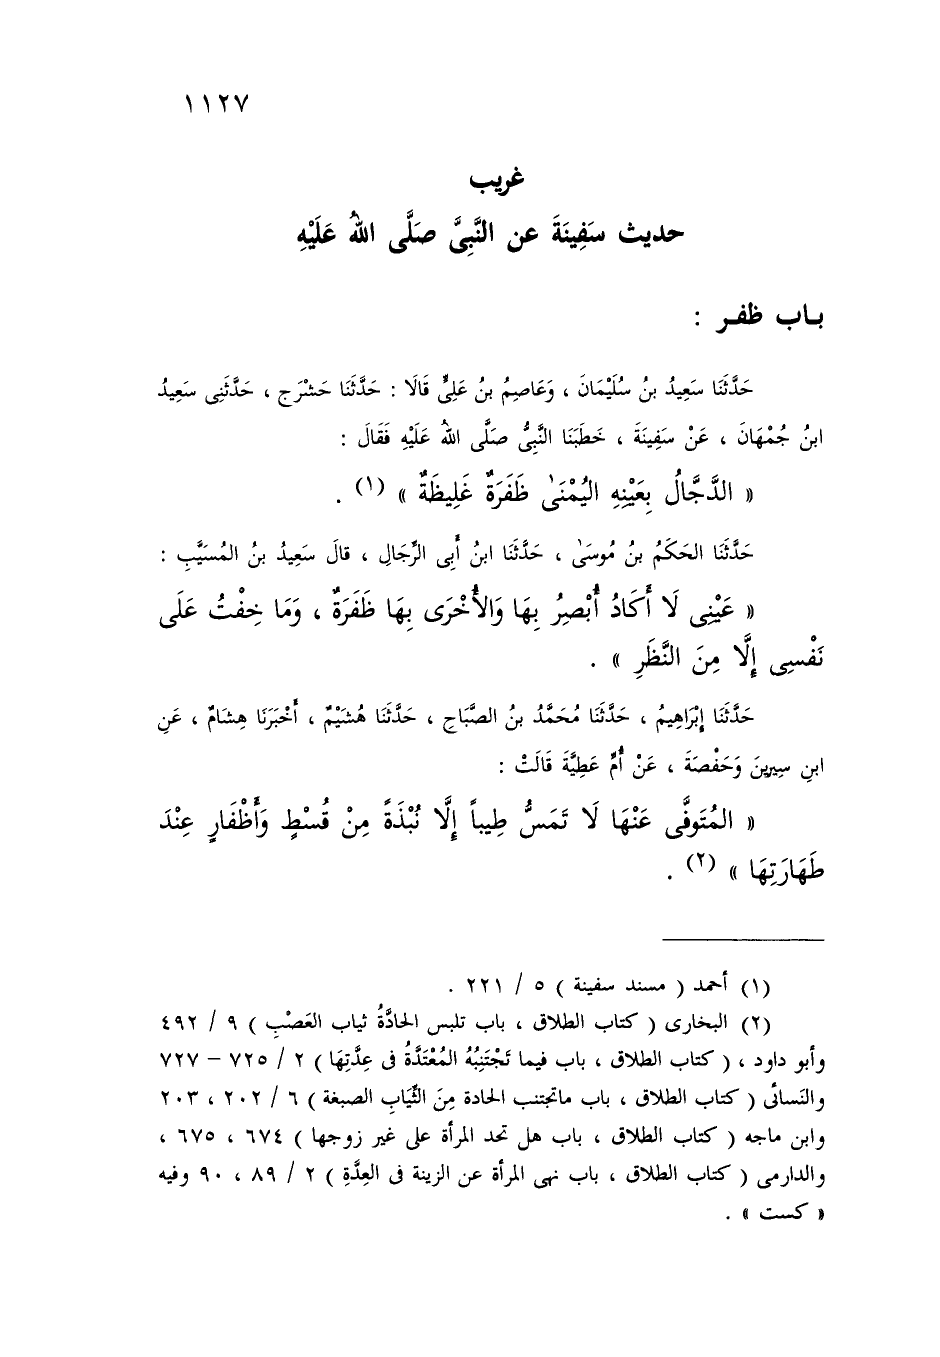 ١١٢٧
غريب
حديث سَفِينَةَ عن النَّبِىَّ صَلَّى اللهُ عَلَيْهِ
بـاب ظفـر :
حَدَّثَنَا سَعِيدُ بنُ سُلَيْمَانَ ، وَعَاصِمُ بنُ عَلِىٍّ قَالَا : حَدَّثَنَا حَشْرَج ، حَدَّثَنِى سَعِيدُ
ابنُ جُمْهَانَ ، عَنْ سَفِينَةَ ، خَطَبَنَا النَّبِىُّ صَلَّى اللهُ عَلَيْهِ فَقَالَ :
« الدَّجَّالُ بِعَيْنِهِ اليُمْنَىٰ ظَفَرَةٌ غَلِيظَةٌ » (١) .
حَدَّثَنَا الحَكَمُ بنُ مُوسَىٰ ، حَدَّثَنَا ابنُ أَبِى الرِّجَالِ ، قالَ سَعِيدُ بنُ المُسَيَّبِ :
« عَيْنِى لَا أَكَادُ أُبْصِرُ بِهَا وَالأُخْرَى بِهَا ظَفَرَةٌ ، وَمَا خِفْتُ عَلَى
نَفْسِى إِلَّا مِنَ النَّظَرِ » .
حَدَّثَنَا إِبْرَاهِيمُ ، حَدَّثَنَا مُحَمَّدُ بنُ الصَّبَاحِ ، حَدَّثَنَا هُشَيْمٌ ، أَخْبَرَنَا هِشَامٌ ، عَنِ
ابنِ سِيرِينَ وَحَفْصَةَ ، عَنْ أُمِّ عَطِيَّةَ قَالَتْ :
« المُتَوفَّى عَنْهَا لَا تَمَسُّ طِيباً إِلَّا نُبْذَةً مِنْ قُسْطٍ وَأَظْفَارٍ عِنْدَ
طَهَارَتِهَا » (٢) .
(١) أحمد ( مسند سفينة ) ٥ / ٢٢١ .
(٢) البخارى ( كتاب الطلاق ، باب تلبس الحادَّةُ ثياب العَصْبِ ) ٩ / ٤٩٢
وأبو داود ، ( كتاب الطلاق ، باب فيما تَجْتَنِبُهُ المُعْتَدَّةُ فى عِدَّتِهَا ) ٢ / ٧٢٥ – ٧٢٧
والنَسائى ( كتاب الطلاق ، باب ماتجتنب الحادة مِنَ الثِّيَابِ الصبغة ) ٦ / ٢٠٢ ، ٢٠٣
وابن ماجه ( كتاب الطلاق ، باب هل تحد المرأة على غير زوجها ) ٦٧٤ ، ٦٧٥ ،
والدارمى ( كتاب الطلاق ، باب نهى المرأة عن الزينة فى العِدَّةِ ) ٢ / ٨٩ ، ٩٠ وفيه
« كست » .